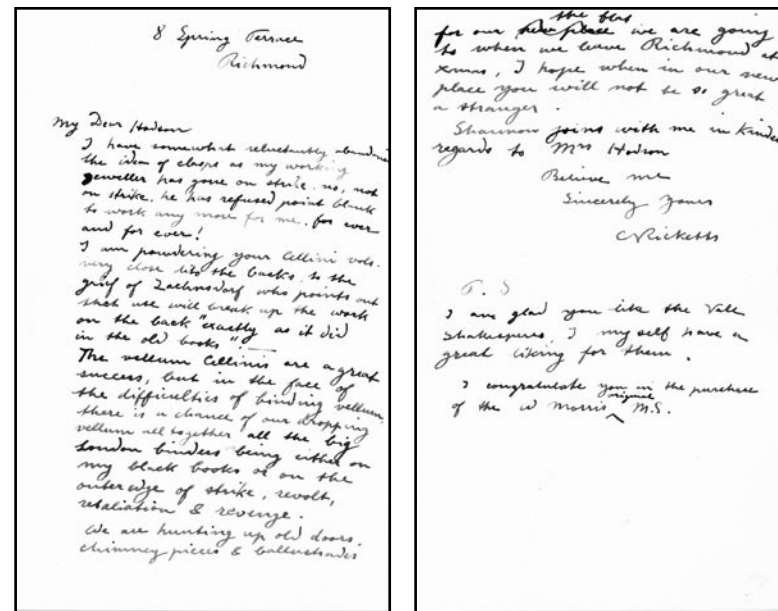 8 Spring Terrace
Richmond
My Dear Hodson
I have somewhat reluctantly abandoned
the idea of clasps as my working
jeweller has gone on strike. no, not
on strike. he has refused point blank
to work any more for me. for ever
and for ever!
I am powdering your Cellini vols.
very close like the backs. to the
grief of Zaehnsdorf who points out
such use will break up the work
on the back "exactly as it did
in the old books"!
The vellum Cellinis are a great
success, but in the face of
the difficulties of binding vellum,
there is a chance of our dropping
vellum all together all the big
London binders being either on
my black books or on the
outer edge of strike, revolt,
retaliation & revenge.
We are hunting up old doors,
chimney pieces & ballustrades
the
for our new place we are going
to when we leave Richmond at
xmas, I hope when in our new
place you will not be so great
a stranger.
Shannon joins with me in kindest
regards to Mrs Hodson
Believe me
Sincerely Yours
CRicketts
P. S
I am glad you like the Vale
Shakespeares, I my self have a
great liking for them.
I congratulate you in the purchase
original
of the W Morris ^ M.S.